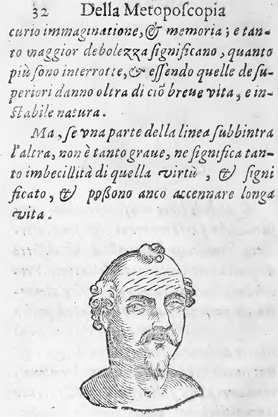 32 Della Metoposcopia
curio immaginatione, & memoria; e tan-
to maggior debolezza significano, quanto
più sono interrotte, & essendo quelle de su-
periori danno oltra di ciò breue vita, e in-
stabile natura.
Ma, se vna parte della linea subbintra
l'altra, non è tanto graue, ne significa tan-
to imbecillità di quella virtù, & signi
ficato, & possono anco accennare longa
vita.